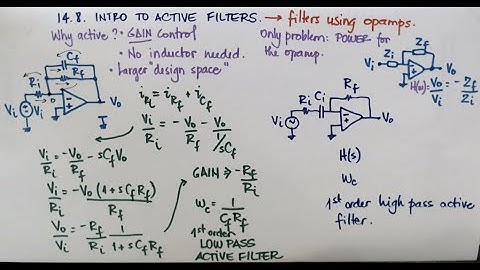 14.8. INTRO TO ACTIVE FILTERS. → filters using opamps.
Why active? • GAIN control
• No inductor needed.
• Larger "design space"
Only problem: POWER for
the opamp.
Cf
Rf
Ri
Vi
Vo
i_Ri = i_Rf + i_Cf
Vi/Ri = -Vo/Rf - Vo/(1/sCf)
Vi/Ri = -Vo/Rf - sCfVo
Vi/Ri = -Vo(1+sCfRf)/Rf
Vo/Vi = -Rf/Ri 1/(1+sCfRf)
GAIN → -Rf/Ri
ωc = 1/(CfRf)
1st order
LOW PASS
ACTIVE FILTER
Zf
Zi
Vi
Vo
H(ω) = Vo/Vi = -Zf/Zi
Rf
Ri
Ci
Vi
Vo
H(s)
ωc
1st order high pass active
filter.